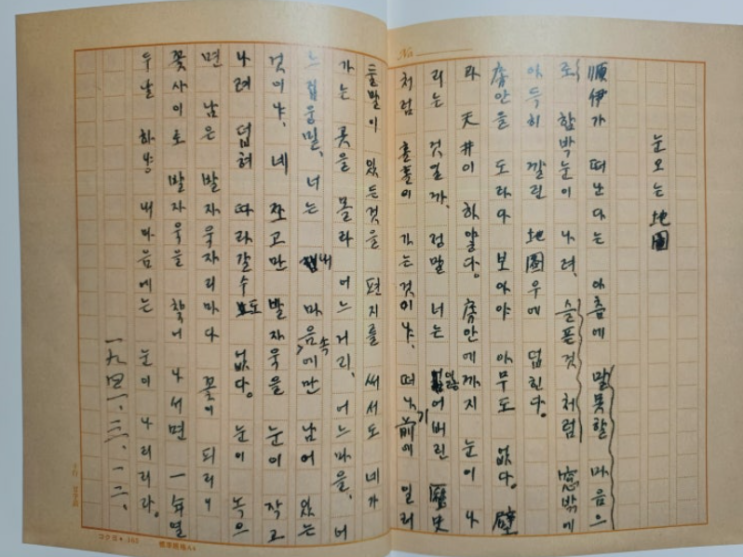 눈오는 地圖
順伊가 떠난다는 아츰에 말못할 마음으
로 함박눈이 나려, 슬픈것 처럼 窓밖에
아득히 깔린 地圖우에 덥힌다.
房안을 도라다 보아야 아무도 없다. 壁
과 天井이 하얗다. 房안에까지 눈이 나
리는 것일까, 정말 너는 잃어버린 歷史
처럼 홀홀이 가는것이냐, 떠나기前에 일러
둘말이 있든것을 편지를 써서도 네가
가는 곳을 몰라 어느거리, 어느마을, 어
느집웅밑, 너는 내 마음속에만 남어 있는
것이냐, 네 쪼고만 발자욱을 눈이 작고
나려 덥혀 따라갈수도 없다. 눈이 녹으
면 남은 발자욱자리마다 꽃이 피리니
꽃사이로 발자욱을 찾어 나서면 一年열
두달 하냥 내마음에는 눈이 나리리라.
一九四一、三、一二、